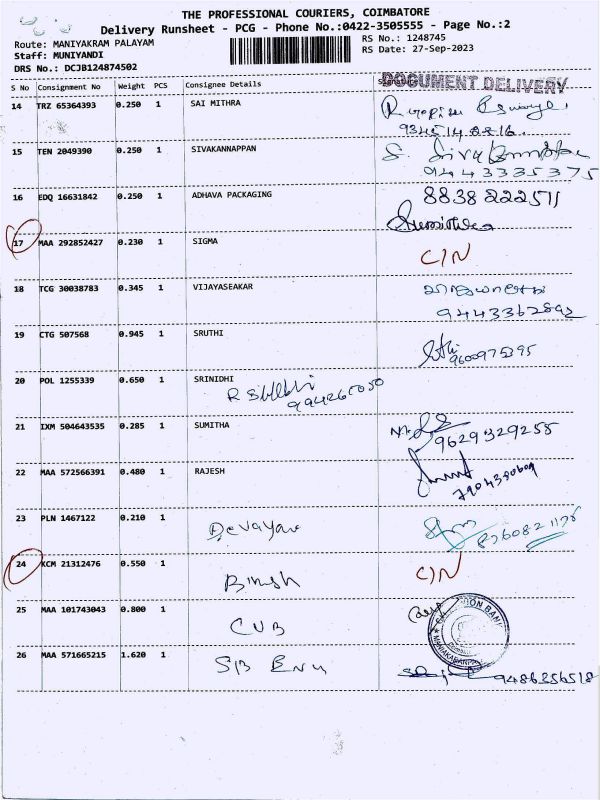 THE PROFESSIONAL COURIERS, COIMBATORE
Delivery Runsheet - PCG - Phone No.:0422-3505555 - Page No.:2
Route: MANIYAKRAM PALAYAM
RS No.: 1248745
Staff: MUNIYANDI
RS Date: 27-Sep-2023
DRS No.: DCJB124874502
S No Consignment No Weight PCS Consignee Details Signature
DOCUMENT DELIVERY
14 TRZ 65364393 0.250 1 SAI MITHRA
15 TEN 2049390 0.250 1 SIVAKANNAPPAN
9443335375
16 EDQ 16631842 0.250 1 ADHAVA PACKAGING 8838222511
17 MAA 292852427 0.230 1 SIGMA C/N
18 TCG 30038783 0.345 1 VIJAYASEAKAR
19 CTG 507568 0.945 1 SRUTHI
9600975395
20 POL 1255339 0.650 1 SRINIDHI
21 IXM 504643535 0.285 1 SUMITHA
9629329255
22 MAA 572566391 0.480 1 RAJESH
23 PLN 1467122 0.210 1 Devayan
24 KCM 21312476 0.550 1 C/N
25 MAA 101743043 0.800 1 CUB
26 MAA 571665215 1.620 1
9486356518